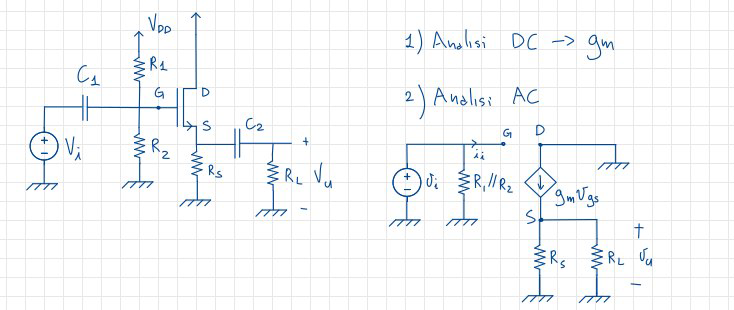 V_DD
R1
C1
G
D
S
C2
+
-
Vi
R2
Rs
RL
Vu
+
-
1) Analisi DC -> gm
2) Analisi AC
G
D
ii
+
-
vi
R1//R2
gm vgs
S
Rs
RL
+
vu
-